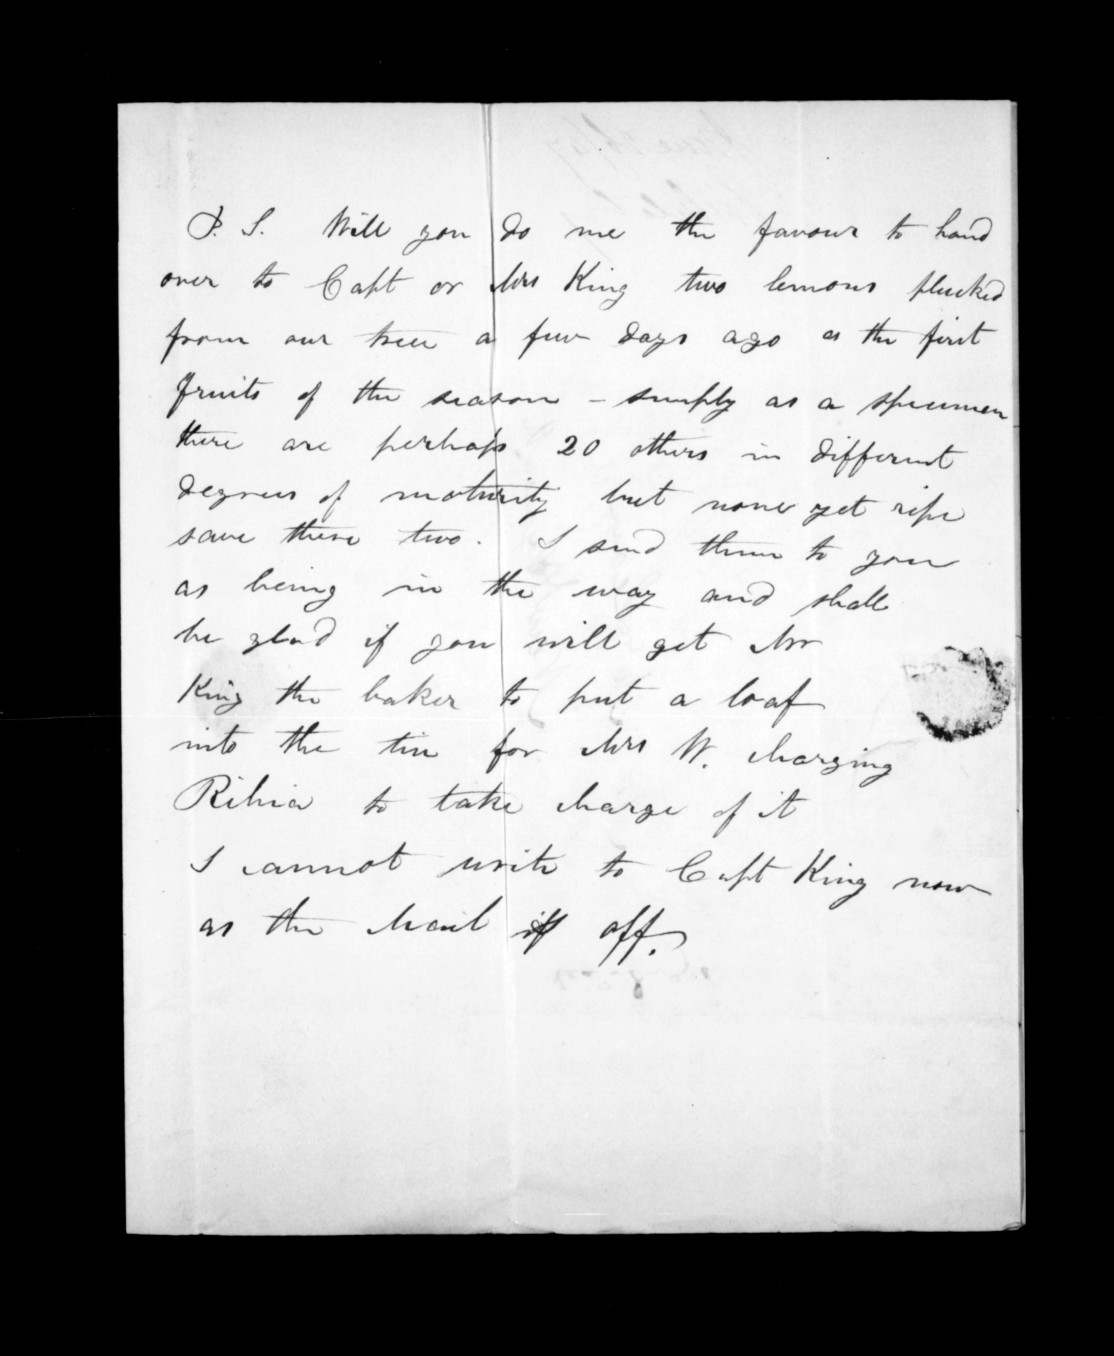 P. S. Will you do me the favour to hand
over to Capt or Mrs King two lemons plucked
from our tree a few days ago as the first
fruits of the season – simply as a specimen
there are perhaps 20 others in different
degrees of maturity but none yet ripe
save these two. I send them to you
as being in the way and shall
be glad if you will get Mr
King the baker to put a loaf
into the tin for Mrs W. charging
Ribia to take charge of it
I cannot write to Capt King now
as the Mail is off.